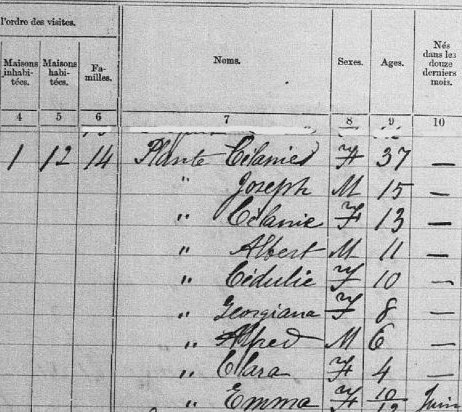 l'ordre des visites.
Maisons inhabi-tées. Maisons habi-tées. Fa-milles. Noms. Sexes. Ages. Nés dans les douze derniers mois.
4 5 6 7 8 9 10
1 12 14 Plante Célanies F 37 —
" Joseph M 15 —
" Célanie F 13 —
" Albert M 11 —
" Cédulie F 10 —
" Georgiana F 8 —
" Alfred M 6 —
" Clara F 4 —
" Emma F 10/12 Juin